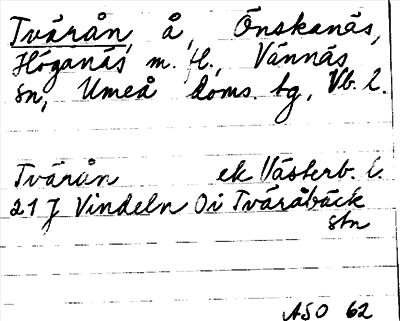 Tvärån, å, Önskanäs,
Höganäs m. fl., Vännäs
sn, Umeå doms. tg, Vb. l.
Tvärån ek Västerb. l.
21 J Vindeln Oi Tväråbäck
stn
ASO 62